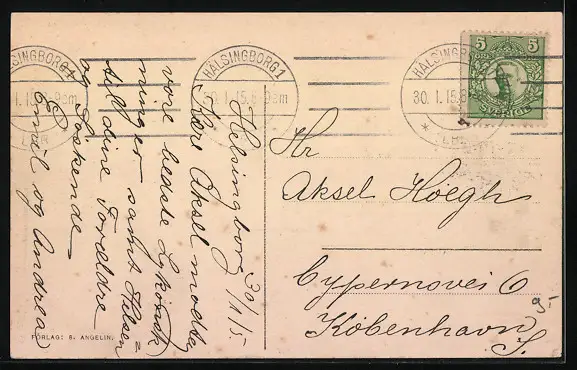 HÄLSINGBORG 1
30.1.15.8-9em
LBR
HÄLSINGBORG 1
30.1.15.8-9em
HÄLSINGBORG
30.1.15.8
LBR
5 5
SVERIGE
Helsingborg 30/1 15.
Kære Aksel modtag
vore bedste Lykønsk
ninger samt Hilsen
til dine Forældre
og Søskende
Emil og Andrea
Hr
Aksel Høegh
Cypernsvei 6
København
S.
FÖRLAG: B. ANGELIN.